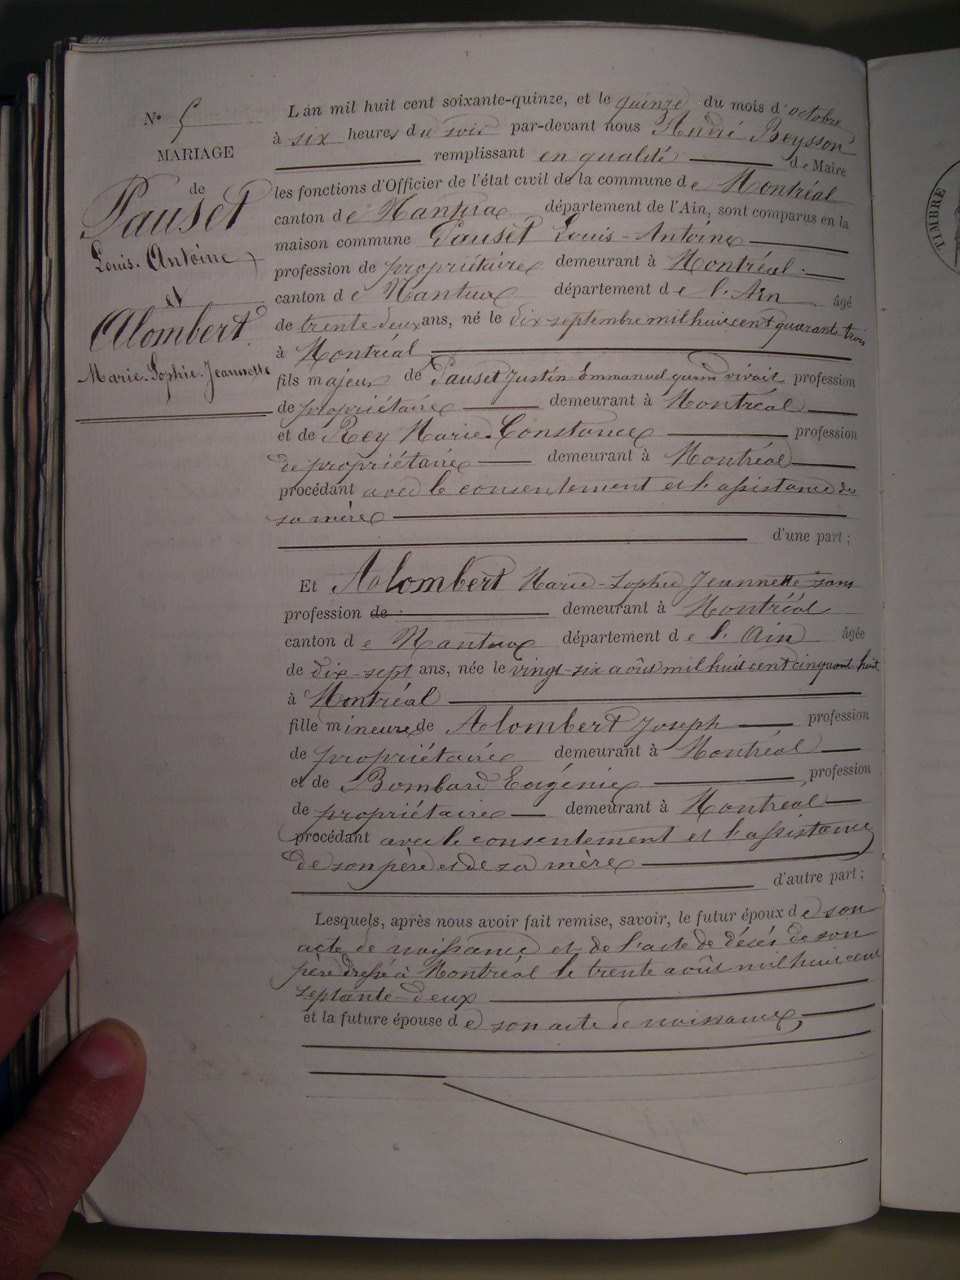 N° 5
MARIAGE
de
Pauset
Louis-Antoine
et
Alombert
Marie-Sophie-Jeannette
L'an mil huit cent soixante-quinze, et le quinze du mois d'octobre
à six heures du soir par-devant nous André Beysson
remplissant en qualité de Maire
les fonctions d'Officier de l'état civil de la commune de Montréal
canton de Nantua département de l'Ain, sont comparus en la
maison commune Pauset Louis-Antoine
profession de propriétaire demeurant à Montréal
canton de Nantua département de l'Ain âgé
de trente deux ans, né le dix septembre mil huit cent quarante trois
à Montréal
fils majeur de Pauset Justin Emmanuel quand vivait profession
de propriétaire demeurant à Montréal
et de Rey Marie-Constance profession
de propriétaire demeurant à Montréal
procédant avec le consentement et l'assistance de
sa mère
d'une part ;
Et Alombert Marie-Sophie Jeannette sans
profession de demeurant à Montréal
canton de Nantua département de l'Ain âgée
de dix-sept ans, née le vingt-six août mil huit cent cinquant huit
à Montréal
fille mineure de Alombert Joseph profession
de propriétaire demeurant à Montréal
et de Bombard Eugénie profession
de propriétaire demeurant à Montréal
procédant avec le consentement et l'assistance
de son père et de sa mère
d'autre part ;
Lesquels, après nous avoir fait remise, savoir, le futur époux de son
acte de naissance et de l'acte de décès de son
père dressé à Montréal le trente août mil huit cent
septante-deux
et la future épouse de son acte de naissance,
TIMBRE